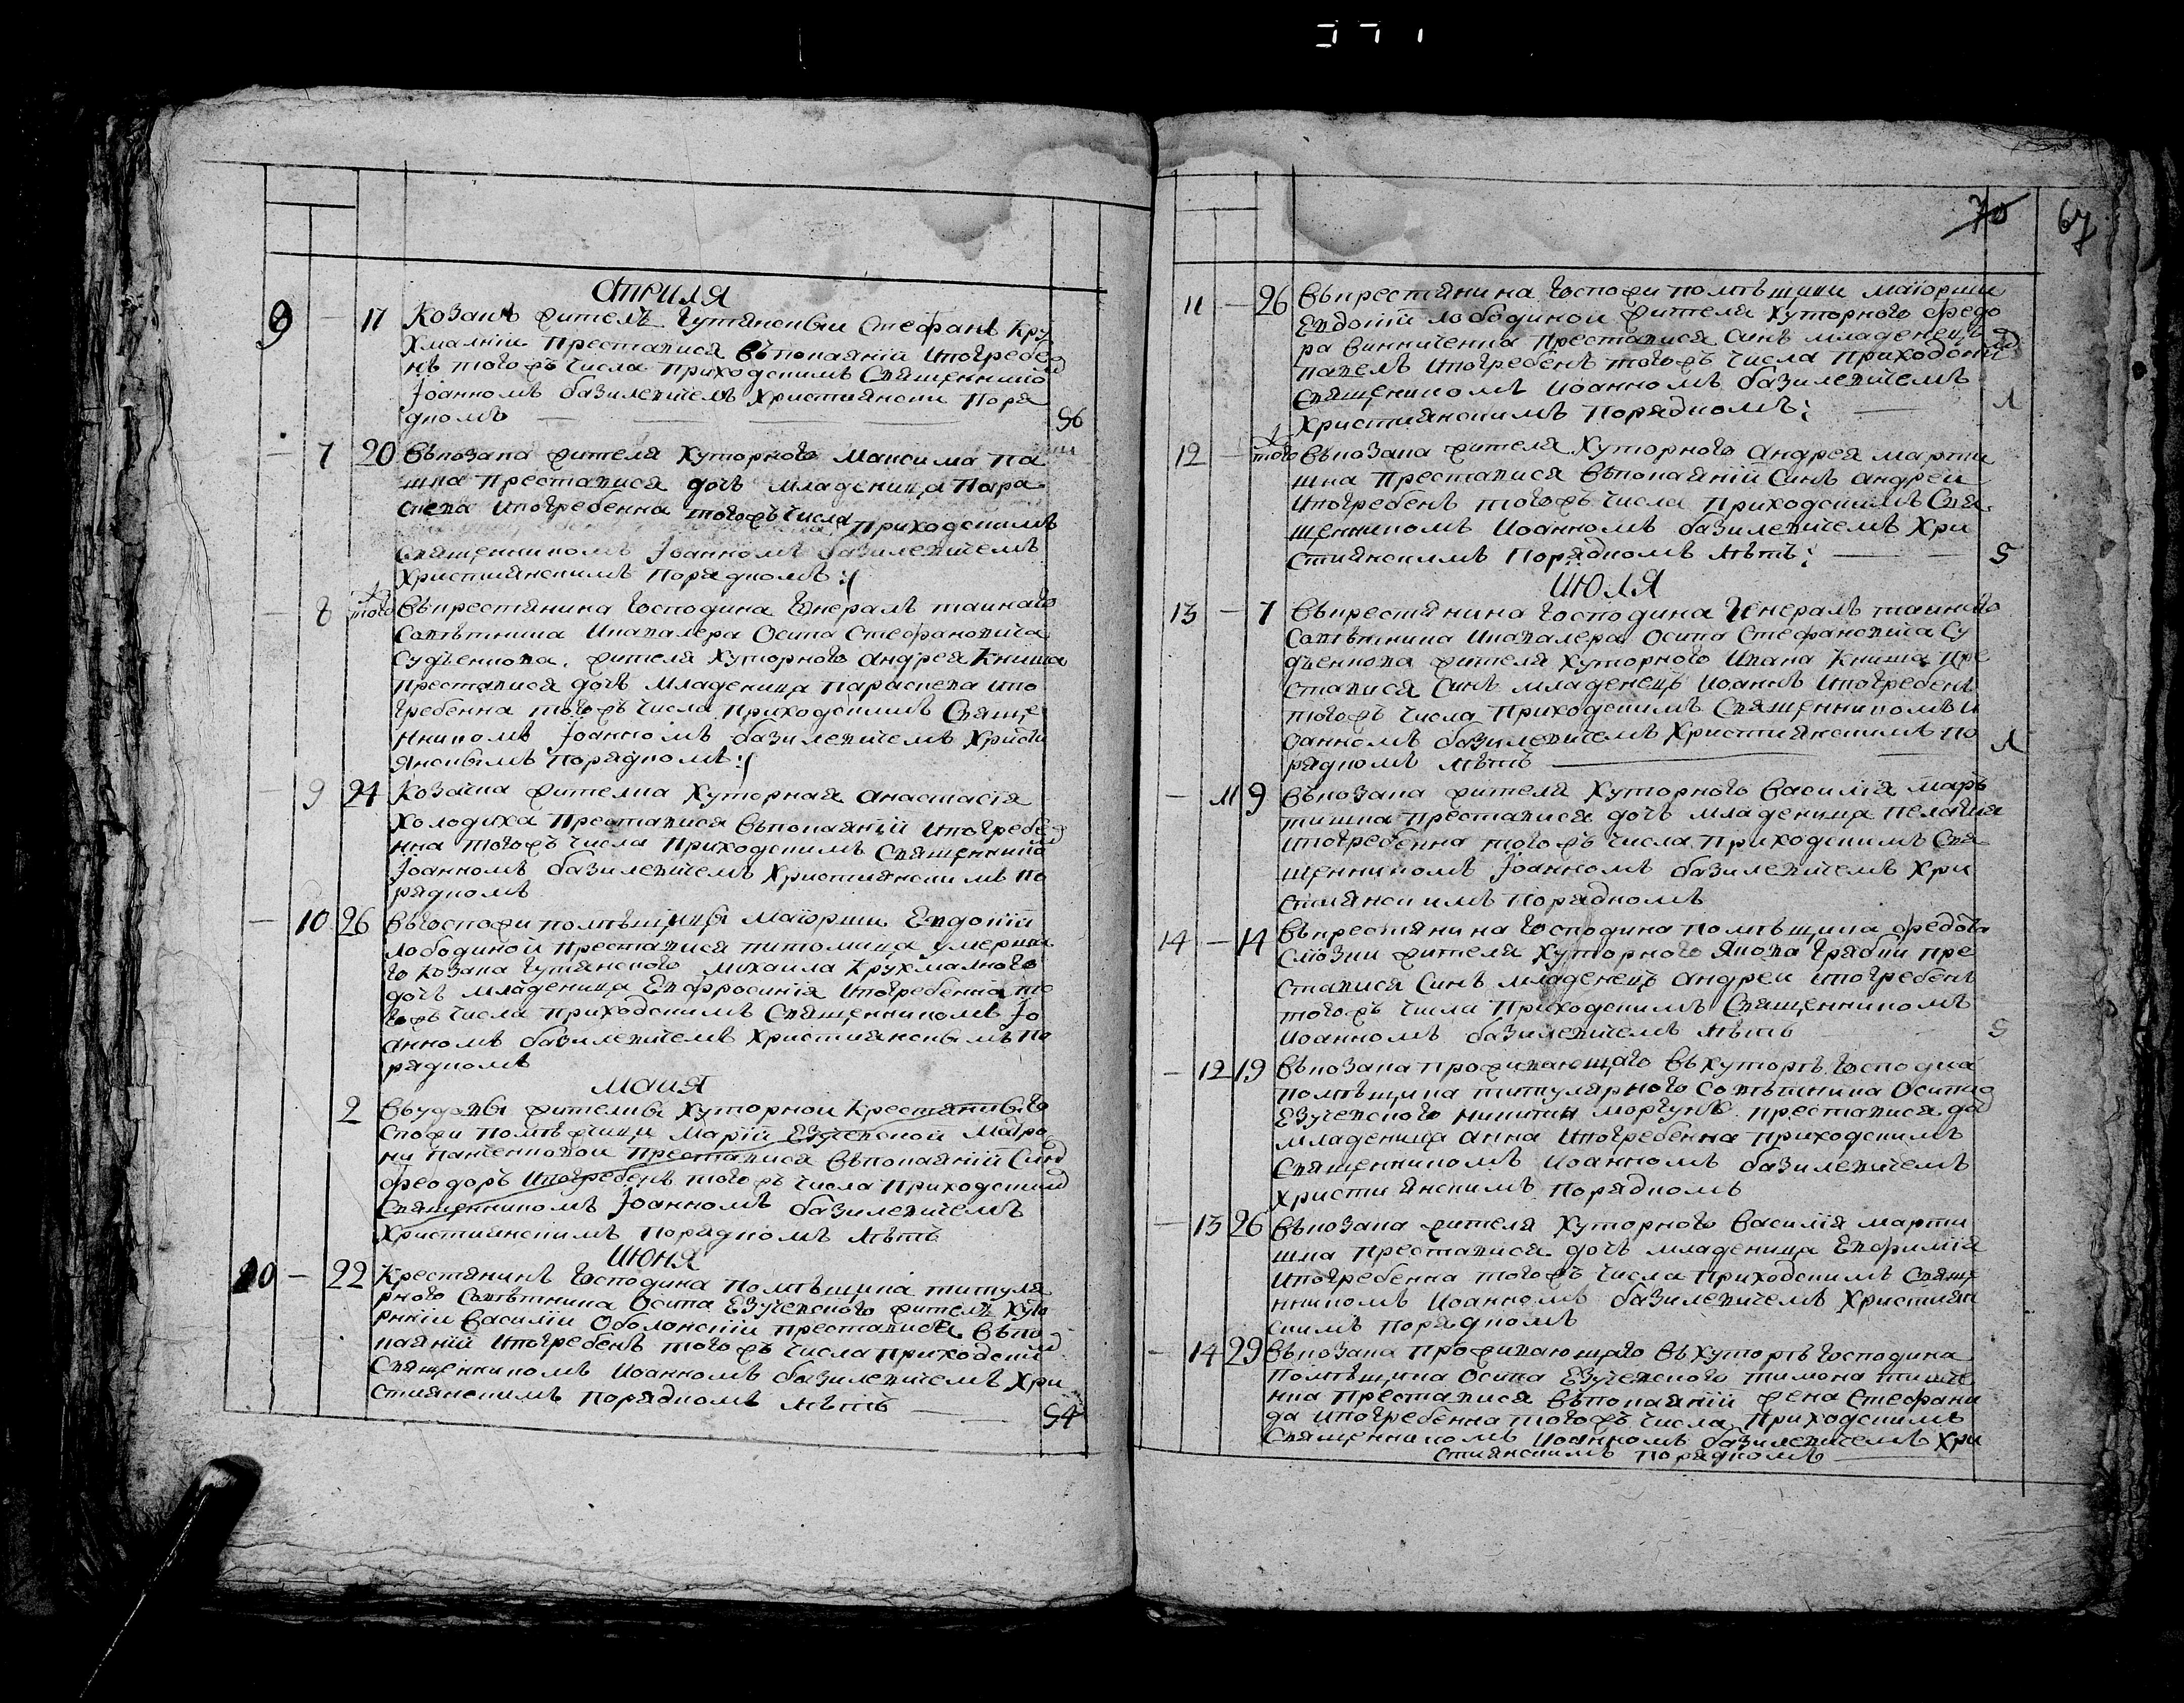 Априля
9 — 17 Козакъ жителъ Гутянскии Стефанъ Кру
хмалній преставися въпокаяніи ипогребе
нъ тогожъ числа приходскимъ Священнико
Іоанномъ базилевичемъ христиански поря
дкомъ — 56
— 7 20 Въкозака жителя хуторного Максима Па
шка преставися дочъ младеница Пара
скева ипогребенна тогожъ числа приходскимъ
Священникомъ Іоанномъ базилевичемъ
христианскимъ порядкомъ:
— 8 того Въкрестянина господина Генералъ таинаго
Советника икавалера Осипа Стефановича
Судъенкова, жителя хуторного Андрея Книша
преставися дочъ младеница параскева ипо
гребенна тогожъ числа приходскимъ Свяще
нникомъ Іоанномъ базилевичемъ христи
янскымъ порядкомъ:
— 9 24 Козачка жителка хуторная Анастасія
Холодиха преставися въпокаяніи ипогребе
нна тогожъ числа приходскимъ Священнико
Іоанномъ базилевичемъ христианскимъ по
рядкомъ
— 10 26 Въгоспожи помѣщицы маіорши Евдокіи
Лободиной преставися питомица умерша
го козака Гутянского михаила Крухмалного
дочъ младеница Евфросинія ипогребенна то
гожъ числа приходскимъ Священникомъ Іо
анномъ базилевичемъ христианскымъ по
рядкомъ
Маия
2 Въудовы жителкы хуторнои Крестянкы го
спожи помѣщици Маріи Езучевской Матро
ни Панченковои преставися въпокаяніи Синъ
Феодоръ ипогребенъ тогожъ числа приходскимъ
Священникомъ Іоанномъ базилевичемъ
христианскимъ порядкомъ лѣтъ
Июня
10 — 22 Крестянинъ господина помѣщика титуля
рного Совѣтника Осипа Езучевского жителъ хуто
рнии Василіи Оболонскіи преставися въпо
каяніи ипогребенъ тогожъ числа приходски
Священникомъ Иоанномъ базилевичемъ хри
стианскимъ порядкомъ лѣтъ — 54
70 67
11 — 26 Въкрестянина госпожи помѣщики маіорши
Евдокіи Лободинои жителя хуторного Федо
ра Винниченка преставися Синъ младенецъ
Павелъ ипогребенъ тогожъ числа приходски
Священикомъ Иоанномъ базилевичемъ
христианскимъ порядкомъ: — 1
12 — того Въкозака жителя хуторного Андрея Марти
шка преставися въпокаяніи Синъ Андреи
ипогребенъ тогожъ числа приходскимъ Свя
щенникомъ Иоанномъ базилевичемъ хри
стианскимъ порядкомъ лѣтъ: — 5
Июля
13 — 7 Въкрестянина господина Генералъ таинаго
Совѣтника икавалера Осипа Стефановича Су
дъенкова жителя хуторного Ивана Книша пре
ставися Синъ младенецъ Иоаннъ ипогребенъ
тогожъ числа приходскимъ Священникомъ И
оанномъ базилевичемъ христианскимъ по
рядкомъ лѣтъ — 1
— 11 9 Въкозака жителя хуторного Василія Маръ
тишка преставися дочъ младеница Пелагия
ипогребенна тогожъ числа приходскимъ Свя
щенникомъ Іоанномъ базилевичемъ хри
стианскимъ порядкомъ
14 — 14 Въкрестянина господина помѣщика Федота
жителя хуторного Якова Грабки пре
ставися Синъ младенецъ Андреи ипогребенъ
тогожъ числа приходскимъ Священникомъ
Иоанномъ базилевичемъ лѣтъ 5
— 12 19 Въкозака проживающаго въхуторѣ господна
помѣщика титулярного Совѣтника Осипа
Езучевского никити Моргунъ преставися до
младеница Анна ипогребенна приходскимъ
Священникомъ Иоанномъ базилевичемъ
христианскимъ порядкомъ
— 13 26 Въкозака жителя хуторного Василія Марти
шка преставися дочъ младеница Евфимія
ипогребенна тогожъ числа приходскимъ Свяще
нникомъ Иоанномъ базилевичемъ христиан
скимъ порядкомъ
— 14 29 Въкозака проживающаго въхуторѣ господина
помѣщика Осипа Езучевского Тимона
преставися въпокаяніи жена Стефани
да ипогребенна тогожъ числа приходскимъ
Священникомъ Иоанномъ базилевичемъ хри
стианскимъ порядкомъ —